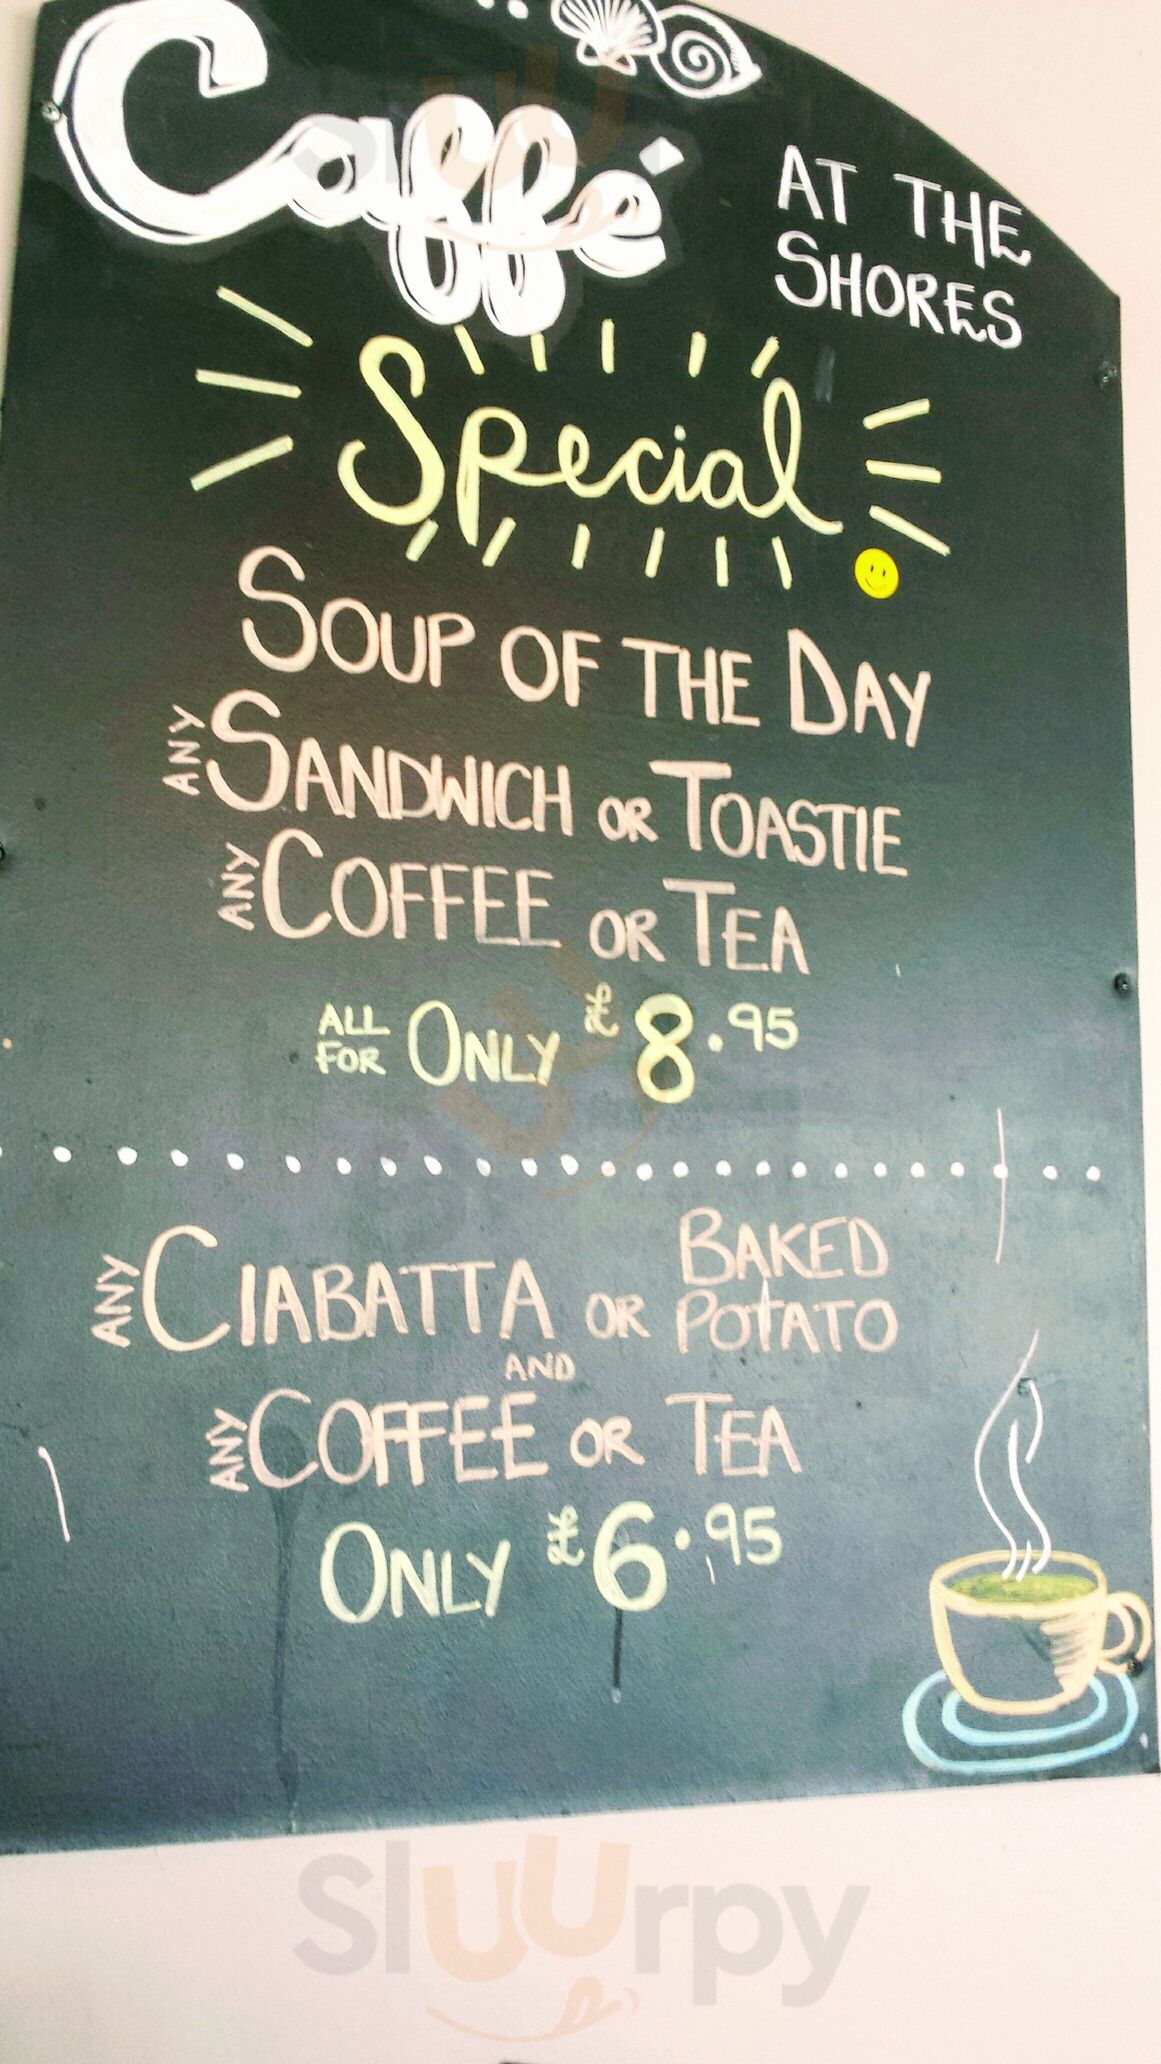 Caffé
AT THE
SHORES
Special
SOUP OF THE DAY
ANY SANDWICH OR TOASTIE
ANY COFFEE OR TEA
ALL FOR ONLY £8.95
ANY CIABATTA OR BAKED POTATO
AND
ANY COFFEE OR TEA
ONLY £6.95
Sluurpy